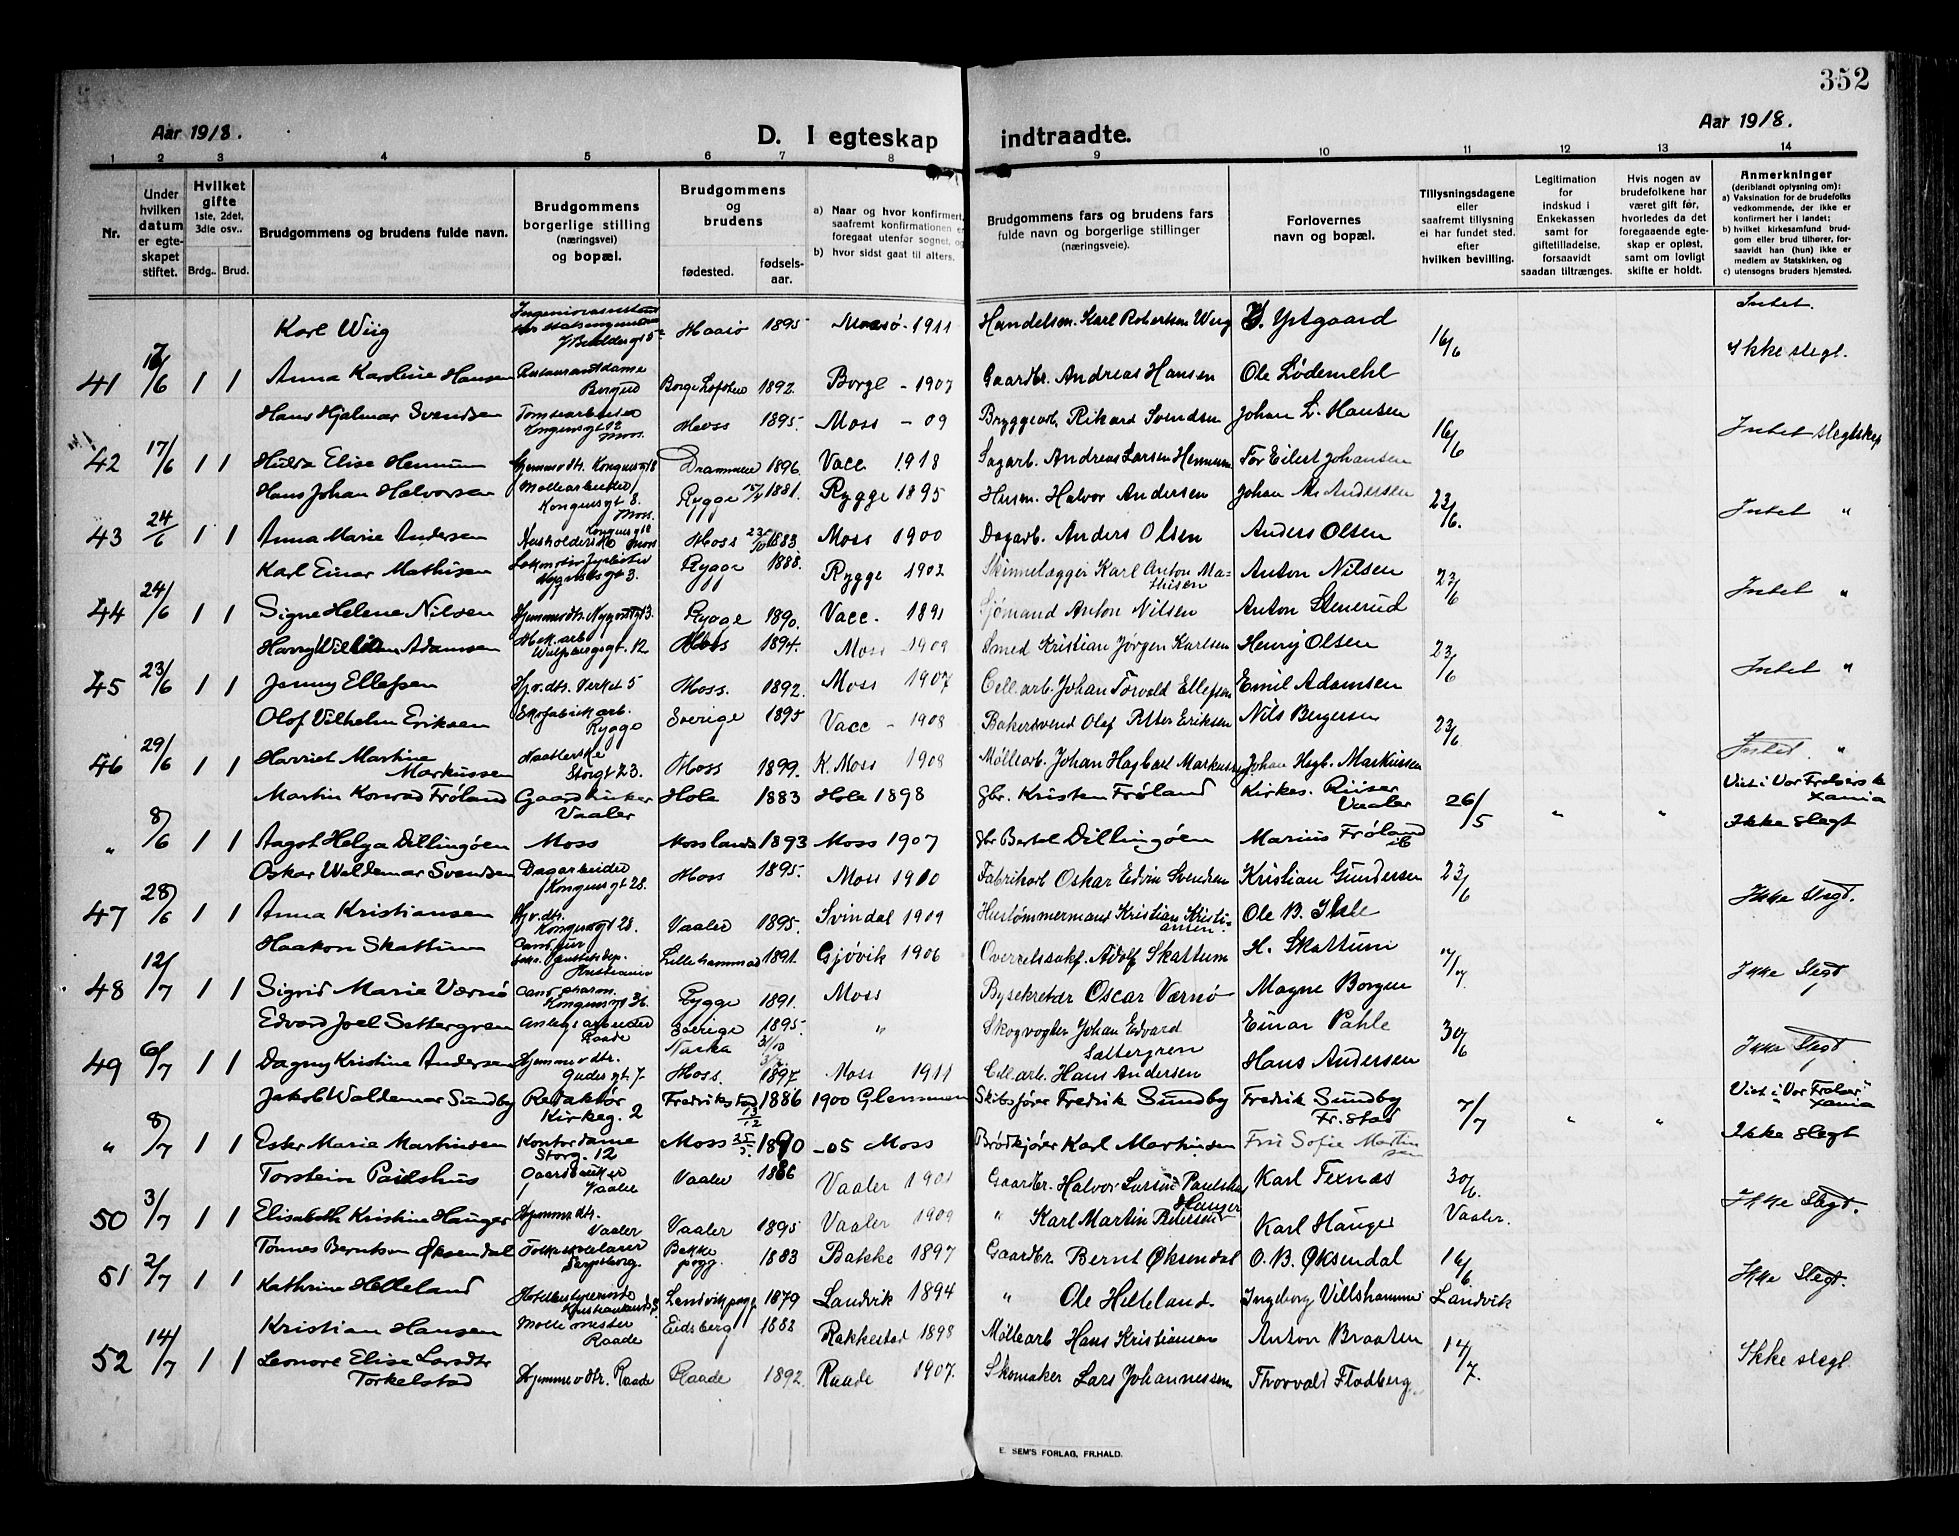 352
Aar 1918.
D. I egteskap indtraadte.
Aar 1918.
1 2 3 4 5 6 7 8 9 10 11 12 13 14
Nr.
Under hvilken datum er egte-skapet stiftet.
Hvilket gifte 1ste, 2det, 3die osv..
Brdg.. Brud.
Brudgommens og brudens fulde navn.
Brudgommens borgerlige stilling (næringsvei) og bopæl.
Brudgommens og brudens
fødested. fødsels-aar.
a) Naar og hvor konfirmert, saafremt konfirmationen er foregaat utenfor sognet, og
b) hvor sidst gaat til alters.
Brudgommens fars og brudens fars fulde navn og borgerlige stillinger (næringsveie).
Forlovernes navn og bopæl.
Tillysningsdagene eller saafremt tillysning ei har fundet sted. efter hvilken bevilling.
Legitimation for indskud i Enkekassen samt for giftetilladelse, forsaavidt saadan tiltrænges.
Hvis nogen av brudefolkene har været gift før, hvorledes da det foregaaende egte-skap er opløst, samt om lovligt skifte er holdt.
Anmerkninger (deriblandt oplysning om):
a) Vaksination for de brudefolks vedkommende, der ikke er konfirmert her i landet;
b) hvilket kirkesamfund brud-gom eller brud tilhører, for-saavidt han (hun) ikke er medlem av Statskirken, og
c) utensogns bruders hjemsted.
Karl Wiig 1895 1911 Handelsm. Karl Robertsen Wiig Ystgaard 16/6 Intet.
41 17/6 1 1 Anna Karoline Hansen Restaurantdame Borge 1892 Borge - 1907 Gaardbr. Andreas Hansen Ole Lødemehl Ikke slegt.
Hans Hjalmar Svendsen Tomtearbeider Kongensgt 12 Moss. Moss 1895. Moss - 09 Bryggearb. Rikard Svendsen Johan L. Hansen 16/6 Intet slegtskap
42 17/6 1 1 Hulda Elise Hennum Hjemmev dtr. Kongensgt 18 Drammen 1896. Vacc 1918 Sagarb. Andreas Larsen Hennum Tor Eilert Johansen
Hans Johan Halvorsen Møllearbeider Kongensgt 8. Moss. Rygge 1881. Rygge 1895 Husm. Halvor Andersen Johan M. Andersen 23/6. Intet "
43 24/6 1 1 Anna Marie Andersen Husholderske Moss Moss 1883 Moss 1900 Dagarb. Anders Olsen Anders Olsen
Karl Einar Mathisen Lokomotivfyrbøter Nygaardsgt 3. Rygge 1888. Rygge 1902 Skinnelægger Karl Anton Ma-thisen Anton Nilsen 23/6 Intet "
44 24/6 1 1 Signe Helene Nilsen Hjemmev dtr. Nygaardsgt 3. Rygge 1890. Vacc. 1891 Sjømand Anton Nilsen Anton Stenerud
Harry Wilhelm Adamsen Mek. arb. Wulfsbergsgt. 12 Moss 1894. Moss 1909 Smed Kristian Jørgen Karlsen Henry Olsen 23/6 Intet "
45 23/6 1 1 Jenny Ellefsen Hj.v. dtr. Verket 5 Moss. 1892. Moss 1907 Cell. arb. Johan Torvald Ellefsen Emil Adamsen
Olof Vilhelm Eriksen Skofabrik arb. Rygge Sverige 1895 Vacc - 1908 Bakersvend Olof Petter Eriksen Nils Bergersen 23/6
46 29/6 1 1 Harriet Martine Markussen Storgt 23. Moss 1899. K. Moss 1908 Møllearb. Johan Hagbart Markussen Johan Hagb. Markussen Intet "
Martin Konrad Frøland Gaardbruker Vaaler Hole 1883 Hole 1898 Gbr. Kristen Frøland Kirkes. Riiser Vaaler 26/5 " " Viet i Vor Frelsers k Xania
" 8/6 1 1 Aagot Helga Dillingøen Moss Mosslands 1893 Moss 1907 Gbr Bertel Dillingøen Marius Frøland Ikke slegt
Oskar Waldemar Svendsen Dagarbeider Kongensgt 28. Moss 1895. Moss 1910 Fabrikarb Oskar Edvin Svendsen Kristian Gundersen 23/6
47 28/6 1 1 Anna Kristiansen Hj.v. dtr. Kongensgt 28. Vaaler 1895. Svindal 1909 Hustømmermand Kristian Kristi-ansen. Ole B. Ikke Slegt.
Haakon Skattum Cand. jur Kristiania Lillehammer 1891. Gjøvik 1906 Overretssakf. Adolf Skattum H. Skattum
48 12/7 1 1 Sigrid Marie Værnø Cand. pharm. Kongensgt 36. Rygge 1891. Moss Bysekretær Oscar Værnø Magne Borgen Ikke Slegt
Edvard Joel Settergren Anlegsarbeider Raade Sverige Narka 1895. 31/10 " Skogvogter Johan Edvard Sattergren Einar Pahle 30/6
49 6/7 1 1 Dagny Kristine Andersen Hjemmev dtr. Gudes gt. 7. Moss. 1897 Moss 1911 Cell. arb. Hans Andersen Hans Andersen Ikke Slegt
Jakob Waldemar Sundby Redaktør Kirkeg. 2 Fredrikstad 1886 13/12 1900 Glemmen Skibsfører Fredrik Sundby Fredrik Sundby Fr.stad 7/7 " " Viet i Vor Frelser Xania
" 8/7 1 1 Ester Marie Martinsen Kontordame Storg. 12 Moss 1890 -05 Moss Brødkjører Karl Martinsen Fru Sofie Martin sen Ikke slegt
Torstein Paulshus Gaardbruker Vaaler Vaaler 1886 Vaaler 1901 Gaardbr. Halvor Larsen Paulshus Karl Texnæs 30/6. Vaaler.
50 3/7 1 1 Elisabeth Kristine Hauger Hjemmev dtr. Vaaler Vaaler 1895 Vaaler 1909 " Karl Martin Petersen Hauger Karl Hauger Ikke Slegt.
Tønnes Berntsen Øksendal Folkeskolelærer Sarpsborg. Bakke pgg. 1883 Bakke 1897 Gaardbr. Bernt Øksendal O. B. Øksendal 16/6
51 2/7 1 1 Kathrine Helleland Hotelbestyrerinde Kristiansands Landvik pgg. 1879 Landvik 1894 " Ole Helleland. Ingeborg Villshammer Landvik Ikke Slegt.
Kristian Hansen Møllemester Raade Eidsberg 1883 Rakkestad 1898 Møllearb Hans Kristiansen Anton Braaten 14/7.
52 14/7 1 1 Leonore Elise Larsdtr Torkelstad Hjemmev dtr. Raade Raade 1892. Raade 1907. Skomaker Lars Johannessen Thorvald Flodberg Ikke slegt.
E. SEM'S FORLAG, FR.HALD.